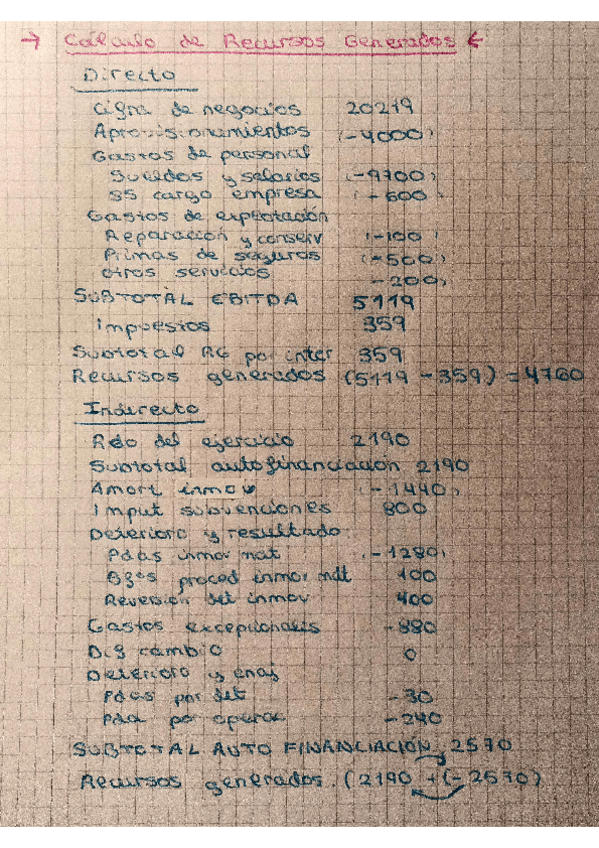 → Cálculo de Recursos Generados ←
Directo
Cifra de negocios 20219
Aprovisionamientos (-4000)
Gastos de personal
Sueldos y salarios (-9700)
SS cargo empresa (-600)
Gastos de explotación
Reparación y conserv (-100)
Primas de seguros (-500)
otros servicios -200)
SUBTOTAL EBITDA 5119
Impuestos 359
Subtotal RG por inter 359
Recursos generados (5119 - 359) = 4760
Indirecto
Rdo del ejercicio 2190
Subtotal autofinanciación 2190
Amort inmov (-1440)
Imput subvenciones 800
Deterioro y resultado
Pdas inmov mat (-1280)
Bfos proced inmov mat 100
Reversión det inmov 400
Gastos excepcionales -880
Dif cambio 0
Deterioro y enaj
Pdas por det -30
Pda por operac -240
SUBTOTAL AUTO FINANCIACIÓN 2570
Recursos generados. (2190 + (-2570)